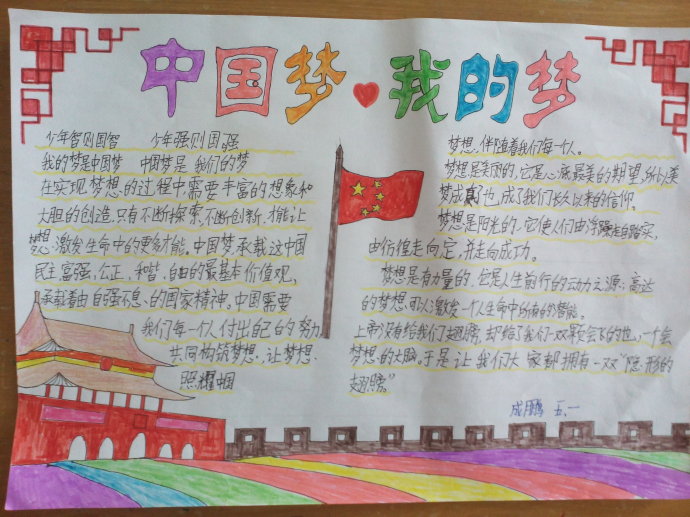 中国梦 我的梦
少年智则国智 少年强则国强
我的梦是中国梦 中国梦是我们的梦
在实现梦想的过程中,需要丰富的想象和
大胆的创造,只有不断探索,不断创新,才能让
梦想激发生命中的更多才能。中国梦,承载这中国
民主,富强、公正、和谐、自由的最基本价值观,
承载着由自强不息、的国家精神。中国需要
我们每一个人付出自己的努力
共同构筑梦想,让梦想
照耀
梦想,伴随着我们每一个人。
梦想是美丽的,它是心底最美的期望,所以美
梦成真了也,成了我们长久以来的信仰。
梦想是阳光的,它使人们由浮躁走自踏实,
由仿值走向定,并走向成功。
梦想是有力量的,它是人生前行的动力之源;高达
的梦想,可以激发一个人生命中所有的潜能。
上帝没有给我们翅膀,却给了我们一双颗会飞的也,一个会
梦想的大脑。于是让我们大家都拥有一双“隐形的
翅膀”
成鹏 五.一